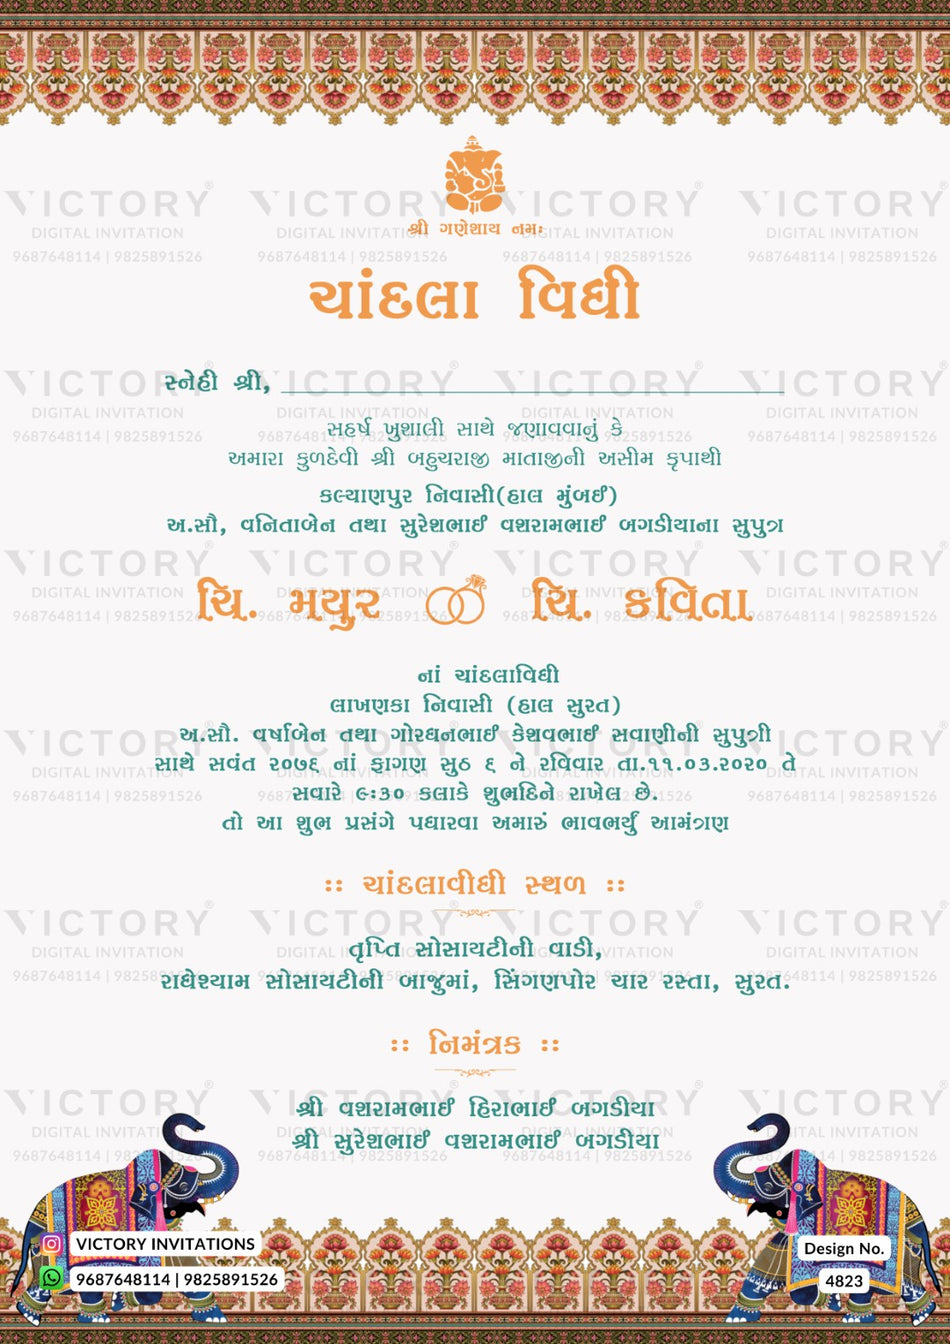 શ્રી ગણેશાય નમઃ
ચાંદલા વિધી
સ્નેહી શ્રી,
સહર્ષ ખુશાલી સાથે જણાવવાનું કે
અમારા કુળદેવી શ્રી બહુચરાજી માતાજીની અસીમ કૃપાથી
કલ્યાણપુર નિવાસી(હાલ મુંબઈ)
અ.સૌ, વનિતાબેન તથા સુરેશભાઈ વશરામભાઈ બગડીયાના સુપુત્ર
ચિ. મયુર ચિ. કવિતા
નાં ચાંદલાવિધી
લાખણકા નિવાસી (હાલ સુરત)
અ.સૌ. વર્ષાબેન તથા ગોરધનભાઈ કેશવભાઈ સવાણીની સુપુત્રી
સાથે સવંત ૨૦૭૬ નાં ફાગણ સુઠ ૬ ને રવિવાર તા.૧૧.૦૩.૨૦૨૦ તે
સવારે ૯:૩૦ કલાકે શુભદિને રાખેલ છે.
તો આ શુભ પ્રસંગે પધારવા અમારું ભાવભર્યું આમંત્રણ
:: ચાંદલાવીધી સ્થળ ::
તૃપ્તિ સોસાયટીની વાડી,
રાધેશ્યામ સોસાયટીની બાજુમાં, સિંગણપોર ચાર રસ્તા, સુરત.
:: નિમંત્રક ::
શ્રી વશરામભાઈ હિરાભાઈ બગડીયા
શ્રી સુરેશભાઈ વશરામભાઈ બગડીયા
VICTORY INVITATIONS
9687648114 | 9825891526
Design No.
4823
VICTORY®
DIGITAL INVITATION
9687648114 | 9825891526